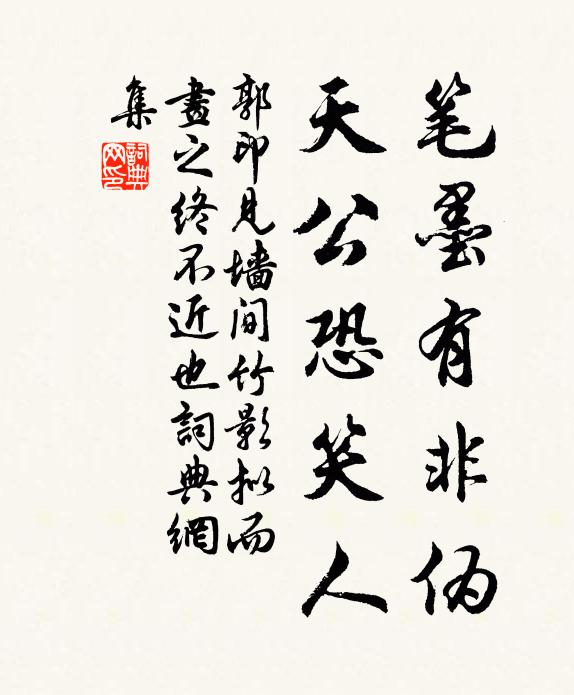 笔墨有非伪
天公恐笑人
郭印见墙间竹影拟而
畫之终不近也詞典網
集
詞典网印